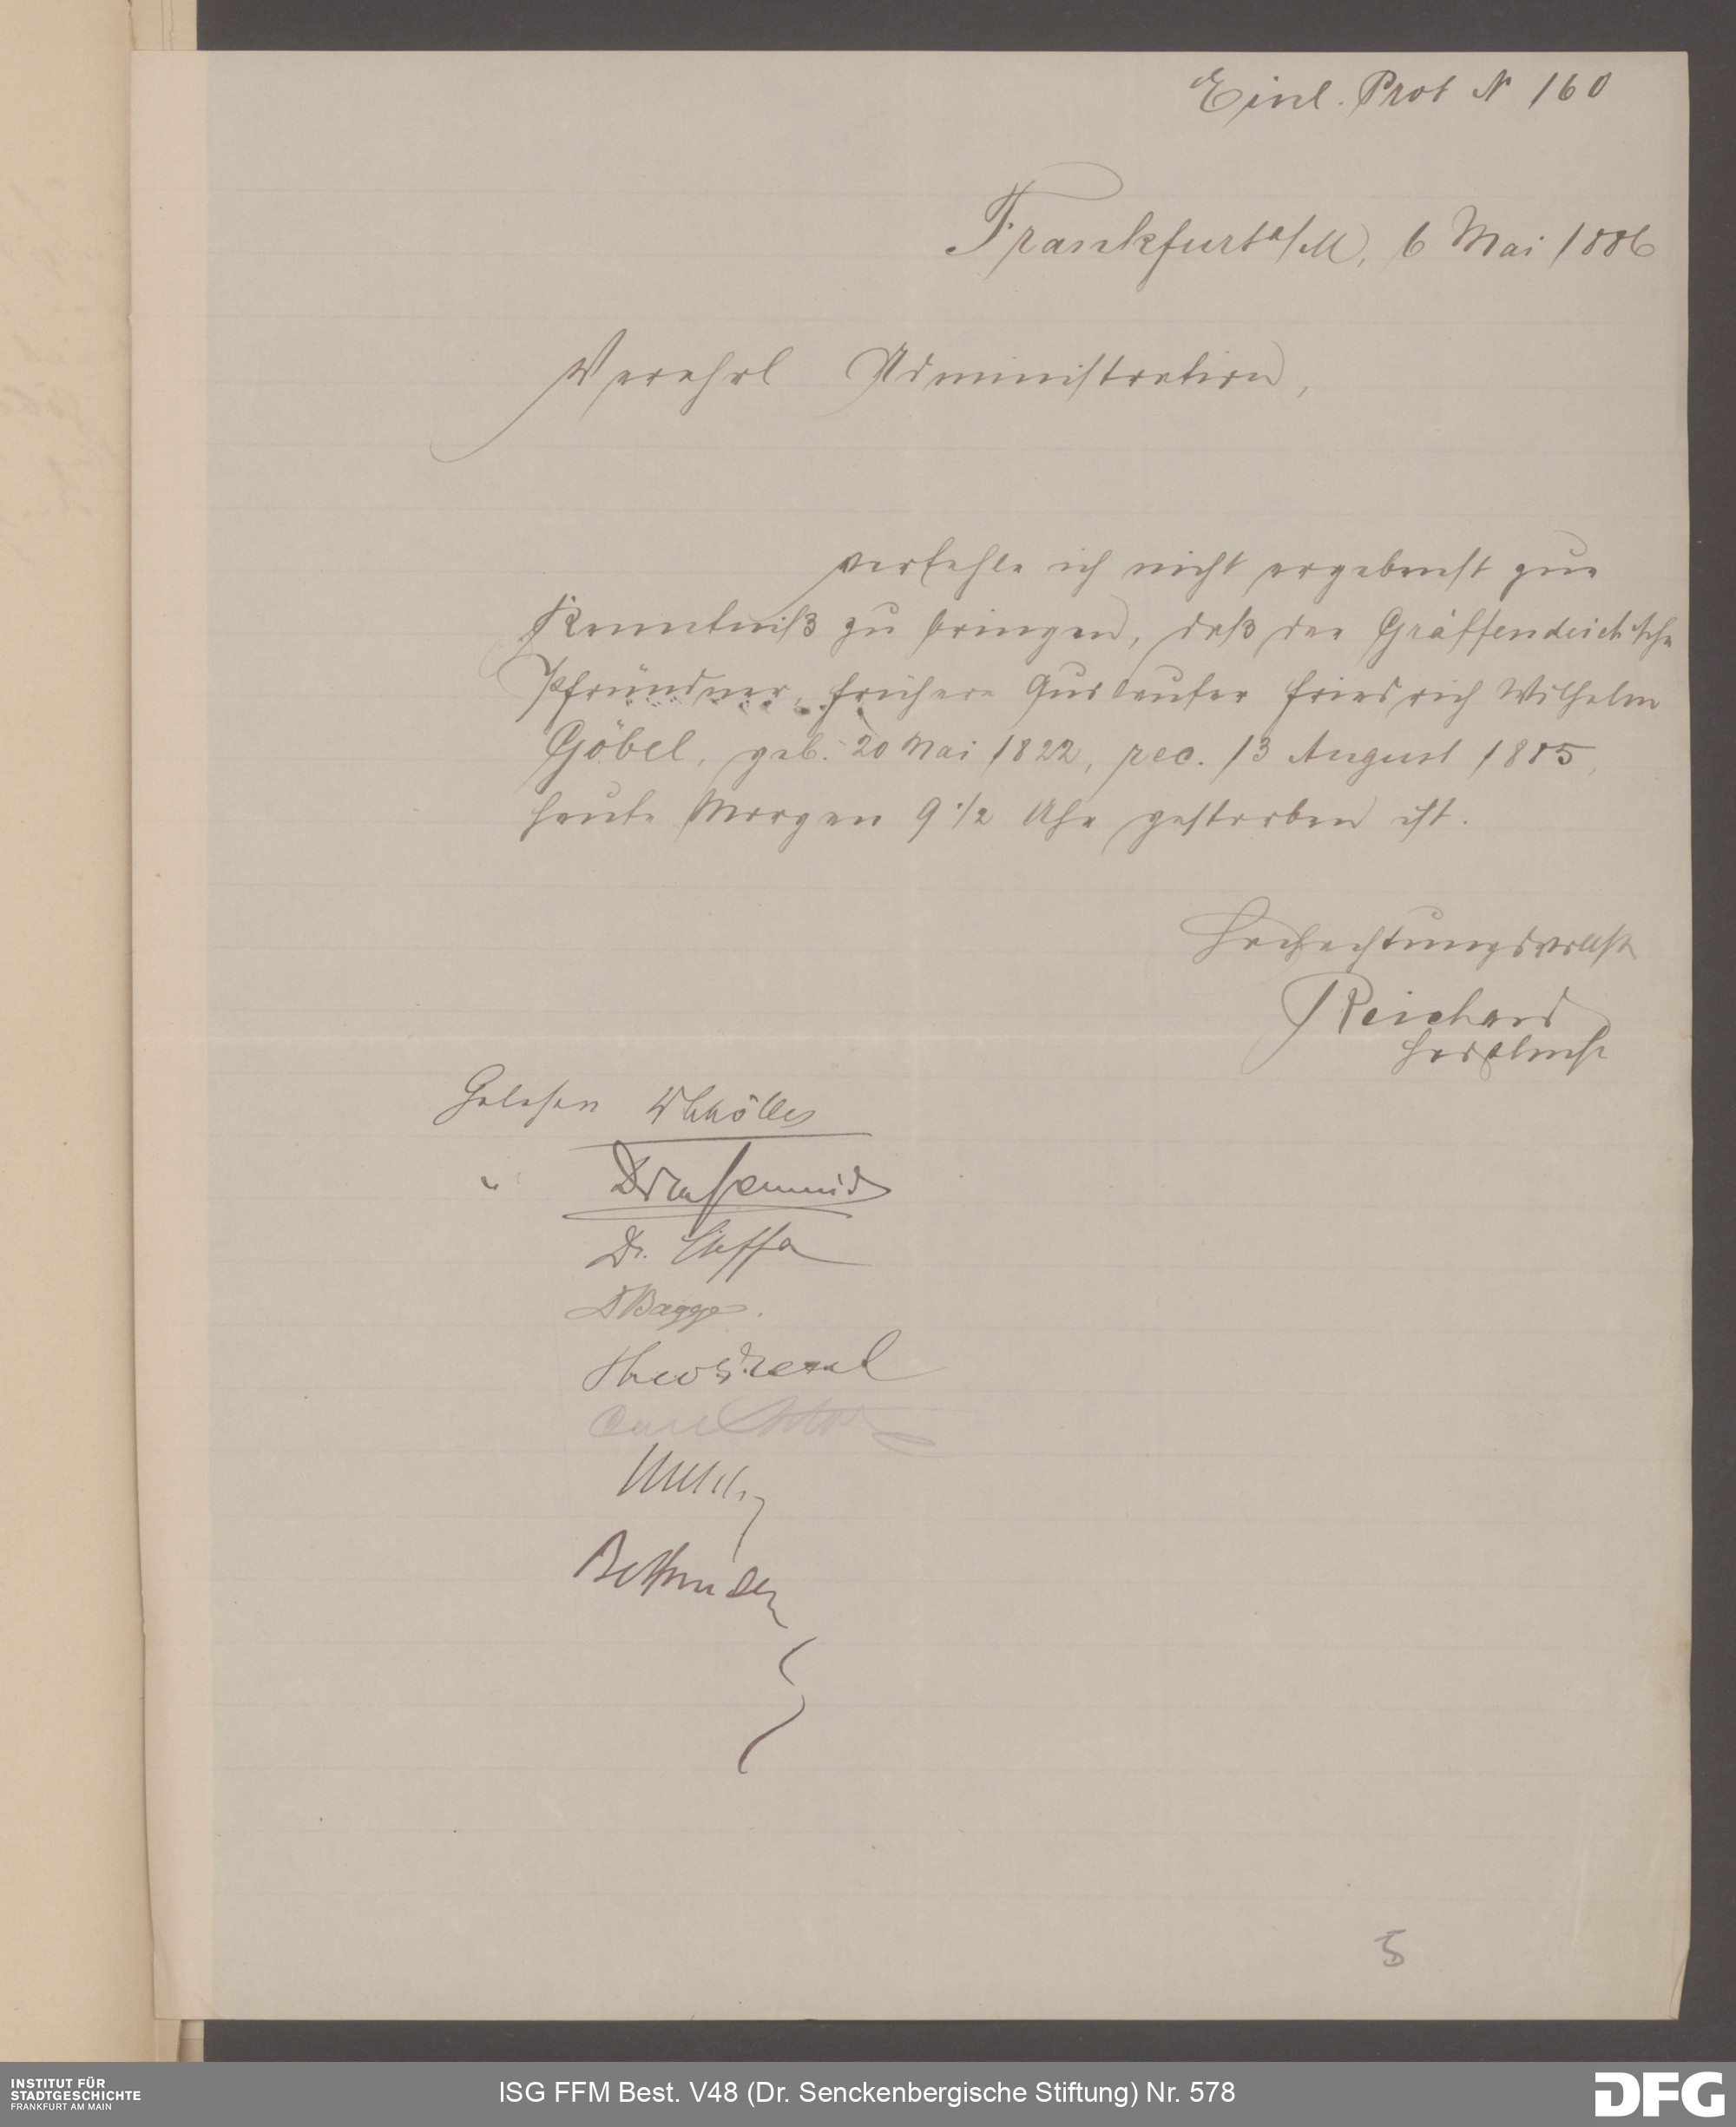 Einl. Prot N 160
Frankfurt a/M, 6 Mai 1886
Verehrl Administration,
verfehle ich nicht ergebenst zur
Kenntniß zu bringen, daß der Gräffendeich'sche
Pfründner, frühere Auslaufer Friedrich Wilhelm
Göbel, geb. 20 Mai 1822, rec. 13 August 1885,
heute Morgen 9 1/2 Uhr gestorben ist.
Hochachtungsvollst
Reichard
Gelesen
"
Dr.
Bagge.
Carl
5
INSTITUT FÜR
STADTGESCHICHTE
FRANKFURT AM MAIN
ISG FFM Best. V48 (Dr. Senckenbergische Stiftung) Nr. 578
DFG